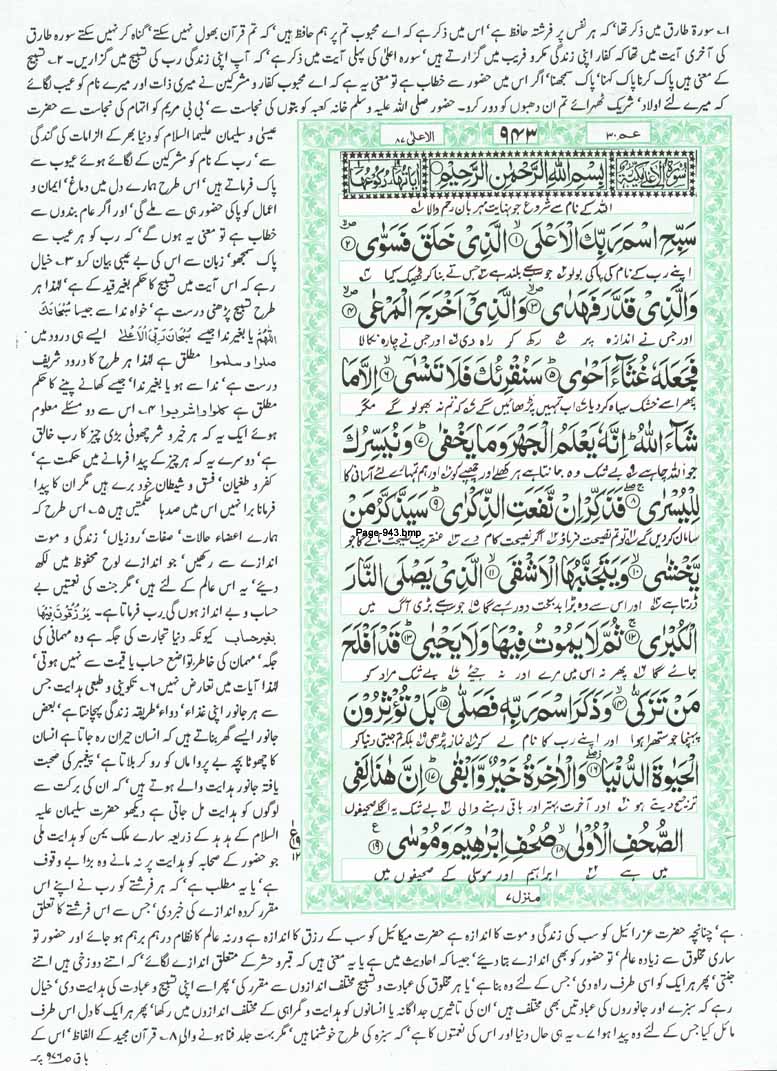 ۱۔ سورۃ طارق میں ذکر تھا‘ کہ ہر نفس پر فرشتہ حافظ ہے‘ اس میں ذکر ہے کہ اے محبوب تم پر ہم حافظ ہیں‘ کہ تم قرآن بھول نہیں سکتے‘ گناہ کر نہیں سکتے سورہ طارق
کی آخری آیت میں تھا کہ کفار اپنی زندگی مکر و فریب میں گزارتے ہیں‘ سورہ اعلیٰ کی پہلی آیت میں ذکر ہے‘ کہ آپ اپنی زندگی رب کی تسبیح میں گزاریں۔ ۲۔ تسبیح
کے معنی ہیں پاک کرنا پاک کہنا‘ پاک سمجھنا‘ اگر اس میں حضور سے خطاب ہے تو معنی یہ ہے کہ اے محبوب کفار و مشرکین نے میری ذات اور میرے نام کو عیب لگائے
کہ میرے لئے اولاد‘ شریک ٹھہرائے تم ان دھبوں کو دور کرو۔ حضور صلی اللہ علیہ وسلم خانہ کعبہ کو بتوں کی نجاست سے‘ بی بی مریم کو اتہام کی نجاست سے حضرت
عیسیٰ و سلیمان علیہما السلام کو دنیا بھر کے الزامات کی گندگی
سے‘ رب کے نام کو مشرکین کے لگائے ہوئے عیوب سے
پاک فرماتے ہیں‘ اس طرح ہمارے دل میں دماغ‘ ایمان و
اعمال کو پاکی حضور ہی سے ملے گی‘ اور اگر عام بندوں سے
خطاب ہے تو معنی یہ ہوں گے‘ کہ رب کو ہر عیب سے
پاک سمجھو‘ زبان سے اس کی بے عیبی بیان کرو ۳۔ خیال
رہے کہ اس آیت میں تسبیح کا حکم بغیر قید کے ہے‘ لہذا ہر
طرح تسبیح پڑھنی درست ہے‘ خواہ ندا سے جیسا سُبْحَانَكَ
اللّٰهُمَّ یا بغیر ندا جیسے سُبْحَانَ رَبِّيَ الْاَعْلٰى ایسے ہی درود میں
صلوا وسلموا مطلق ہے لہذا ہر طرح کا درود شریف
درست ہے‘ ندا سے ہو یا بغیر ندا‘ جیسے کھانے پینے کا حکم
مطلق ہے كلوا واشربوا ۴۔ اس سے دو مسئلے معلوم
ہوئے ایک یہ کہ ہر خیر و شر چھوٹی بڑی چیز کا رب خالق
ہے‘ دوسرے یہ کہ ہر چیز کے پیدا فرمانے میں حکمت ہے‘
کفر و طغیان‘ فسق و شیطان خود برے ہیں مگر ان کا پیدا
فرمانا برا نہیں اس میں صدہا حکمتیں ہیں ۵۔ اس طرح کہ
ہمارے اعضاء حالات‘ صفات‘ روزیاں‘ زندگی و موت
اندازے سے رکھیں‘ جو اندازے لوح محفوظ میں لکھ
دیئے‘ یہ اس عالم کے لئے ہیں‘ مگر جنت کی نعمتیں بے
حساب و بے انداز ہوں گی رب فرماتا ہے۔ يُرْزَقُوْنَ فِيْهَا
بغير حساب کیونکہ دنیا تجارت کی جگہ ہے وہ مہمانی کی
جگہ‘ مہمان کی خاطر تواضع حساب یا قیمت سے نہیں ہوتی‘
لہذا آیات میں تعارض نہیں ۶۔ تکوینی و طبعی ہدایت جس
سے ہر جانور اپنی غذاء‘ دواء‘ طریقہ زندگی پہچانتا ہے‘ بعض
جانور ایسے گھر بناتے ہیں کہ انسان حیران رہ جاتا ہے انسان
کا چھوٹا بچہ بے پروا ماں کو رو کر بلاتا ہے‘ پیغمبر کی صحبت
یافتہ جانور ہدایت والے ہوتے ہیں‘ کہ ان کی برکت سے
لوگوں کو ہدایت مل جاتی ہے دیکھو حضرت سلیمان علیہ
السلام کے ہدہد کے ذریعہ سارے ملک یمن کو ہدایت ملی
جو حضور کے صحابہ کو ہدایت پر نہ مانے وہ بڑا بے وقوف
ہے‘ یا یہ مطلب ہے‘ کہ ہر فرشتے کو رب نے اپنے اس
مقرر کردہ اندازے کی خبر دی‘ جس سے اس فرشتے کا تعلق
عم ۳۰
۹۴۳
الاعلیٰ ۸۷
سُوْرَةُ الْاَعْلٰى مَكِّيَّةٌ
بِسْمِ اللّٰهِ الرَّحْمٰنِ الرَّحِيْمِ
اٰيَاتُهَا ۱۹ رُكُوْعُهَا ۱
اللہ کے نام سے شروع جو نہایت مہربان رحم والا
سَبِّحِ اسْمَ رَبِّكَ الْاَعْلَى ۱ الَّذِيْ خَلَقَ فَسَوّٰى ۲
اپنے رب کے نام کی پاکی بولو جو سب سے بلند ہے جس نے بنا کر ٹھیک کیا
وَالَّذِيْ قَدَّرَ فَهَدٰى ۳ وَالَّذِيْ اَخْرَجَ الْمَرْعٰى ۴
اور جس نے اندازہ پر رکھ کر راہ دی اور جس نے چارہ نکالا
فَجَعَلَهٗ غُثَآءً اَحْوٰى ۵ سَنُقْرِئُكَ فَلَا تَنْسٰٓى ۶ اِلَّا مَا
پھر اسے خشک سیاہ کر دیا اب ہم تمہیں پڑھائیں گے کہ تم نہ بھولو گے مگر
شَآءَ اللّٰهُ اِنَّهٗ يَعْلَمُ الْجَهْرَ وَمَا يَخْفٰى ۷ وَنُيَسِّرُكَ
جو اللہ چاہے بے شک وہ جانتا ہے ہر کھلے اور چھپے کو اور ہم تمہارے لئے آسانی کا
لِلْيُسْرٰى ۸ فَذَكِّرْ اِنْ نَّفَعَتِ الذِّكْرٰى ۹ سَيَذَّكَّرُ مَنْ
سامان کر دیں گے تو تم نصیحت فرماؤ اگر نصیحت کام دے عنقریب نصیحت مانے گا جو
Page-943.bmp
يَّخْشٰى ۱۰ وَيَتَجَنَّبُهَا الْاَشْقَى ۱۱ الَّذِيْ يَصْلَى النَّارَ
ڈرتا ہے اور اس سے وہ بڑا بدبخت دور رہے گا جو سب سے بڑی آگ میں
الْكُبْرٰى ۱۲ ثُمَّ لَا يَمُوْتُ فِيْهَا وَلَا يَحْيٰى ۱۳ قَدْ اَفْلَحَ
جائے گا پھر نہ اس میں مرے اور نہ جئے بے شک مراد کو
مَنْ تَزَكّٰى ۱۴ وَذَكَرَ اسْمَ رَبِّهٖ فَصَلّٰى ۱۵ بَلْ تُؤْثِرُوْنَ
پہنچا جو ستھرا ہوا اور اپنے رب کا نام لے کر نماز پڑھی بلکہ تم جیتی دنیا کو
الْحَيٰوةَ الدُّنْيَا ۱۶ وَالْاٰخِرَةُ خَيْرٌ وَّاَبْقٰى ۱۷ اِنَّ هٰذَا لَفِي
ترجیح دیتے ہو اور آخرت بہتر اور باقی رہنے والی بے شک یہ اگلے صحیفوں
الصُّحُفِ الْاُوْلٰى ۱۸ صُحُفِ اِبْرٰهِيْمَ وَمُوْسٰى ۱۹
میں ہے ابراہیم اور موسیٰ کے صحیفوں میں
منزل ۷
ہے‘ چنانچہ حضرت عزرائیل کو سب کی زندگی و موت کا اندازہ ہے حضرت میکائیل کو سب کے رزق کا اندازہ ہے ورنہ عالم کا نظام درہم برہم ہو جائے اور حضور تو
ساری مخلوق سے زیادہ عالم‘ تو حضور کو بھی اندازے بتا دیئے‘ جیسا کہ احادیث میں ہے یا یہ معنی ہیں کہ قبر و حشر کے متعلق اندازے لگائے‘ کہ اتنے دوزخی ہیں اتنے
جنتی‘ پھر ہر ایک کو اسی طرف راہ دی‘ جس کے لئے وہ بنا ہے‘ یا ہر مخلوق کی عبادت و تسبیح مختلف اندازوں سے مقرر کی‘ پھر اسے اپنی تسبیح و عبادت کی ہدایت دی‘ خیال
رہے کہ سبزے اور جانوروں کی عبادتیں بھی مختلف ہیں‘ ان کی تاثیریں جداگانہ یا انسانوں کو ہدایت و گمراہی کے مختلف اندازوں میں رکھا‘ پھر ہر ایک کا دل اس طرف
مائل کیا جس کے لئے وہ پیدا ہوا ۷۔ یہ ہی حال دنیا اور اس کی نعمتوں کا ہے‘ کہ سبزہ کی طرح خوشنما ہیں‘ مگر بہت جلد فنا ہونے والی ۸۔ قرآن مجید کے الفاظ‘ اس کے
باقی ص ۹۷۶ پر